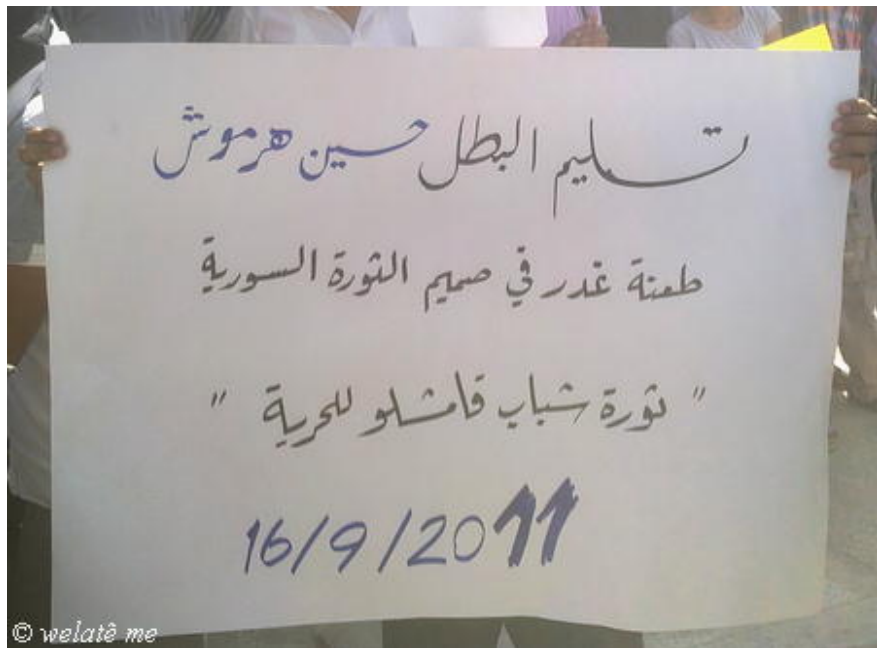 تسليم البطل حسين هرموش
طعنة غدر في صميم الثورة السورية
" ثورة شباب قامشلو للحرية "
16/9/2011
© welatê me